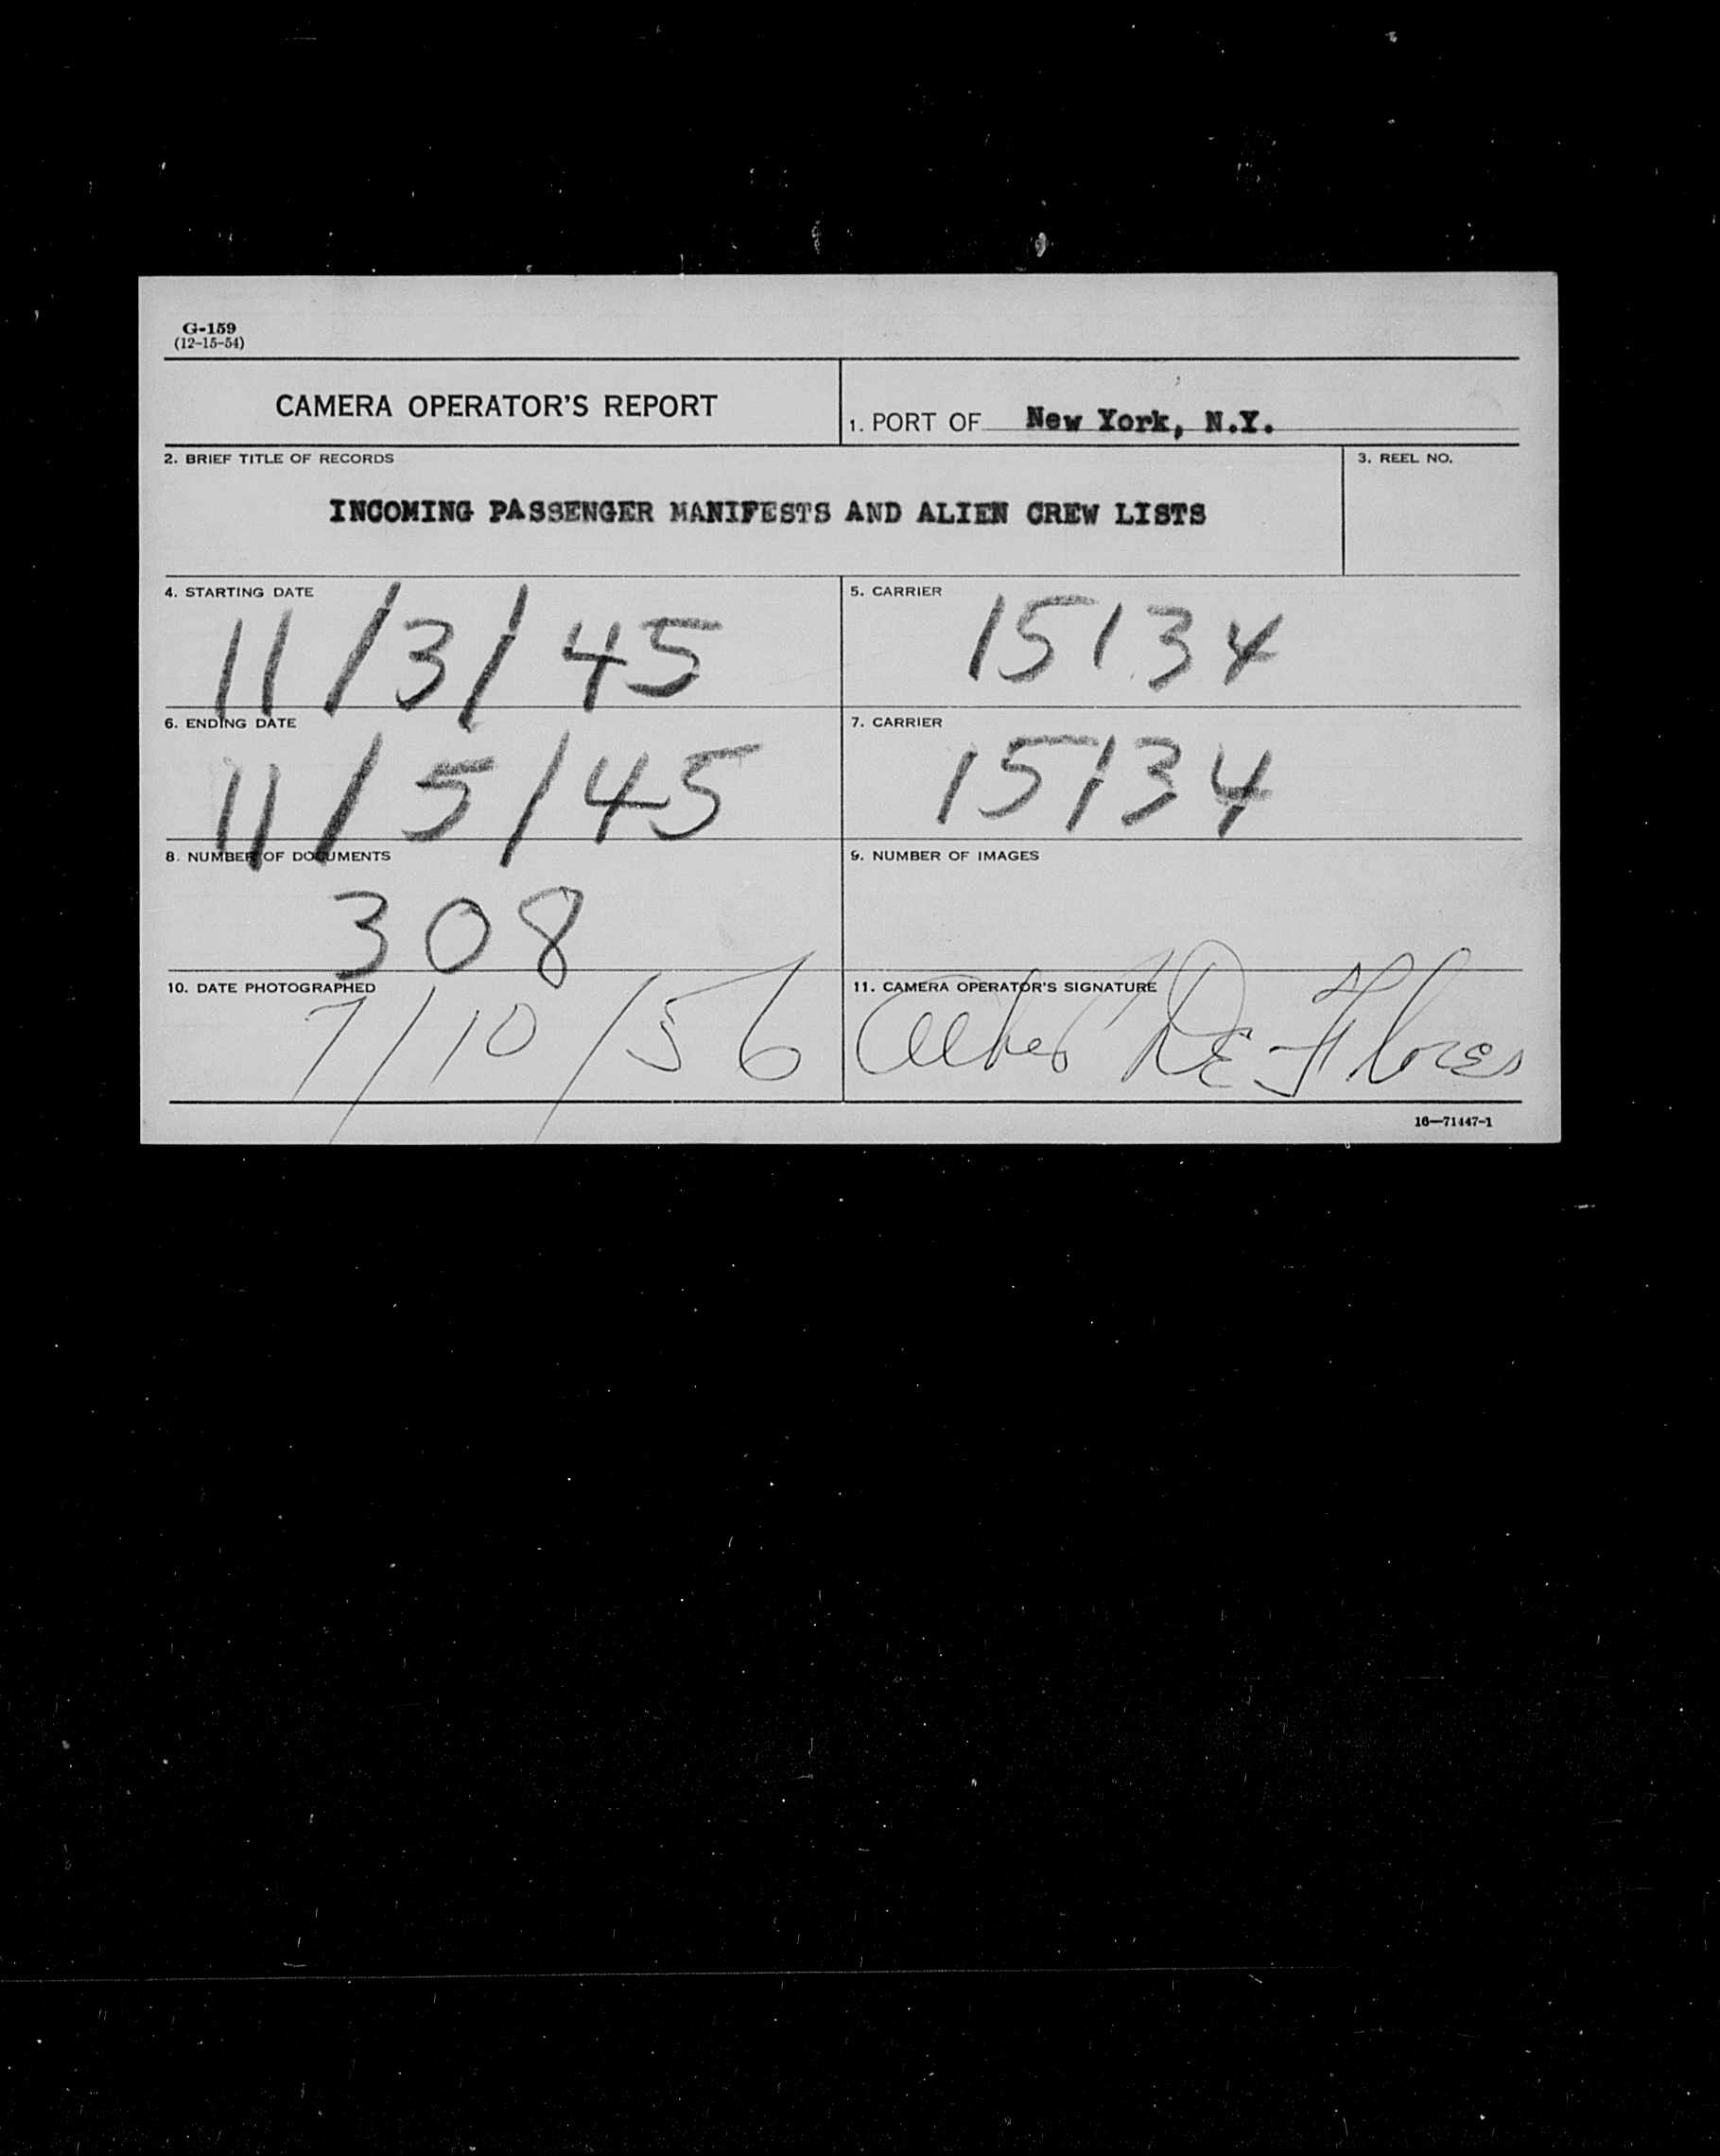 G-159
(12-15-54)
CAMERA OPERATOR'S REPORT
1. PORT OF New York, N.Y.
2. BRIEF TITLE OF RECORDS
3. REEL NO.
INCOMING PASSENGER MANIFESTS AND ALIEN CREW LISTS
4. STARTING DATE
11/3/45
5. CARRIER
15134
6. ENDING DATE
11/5/45
7. CARRIER
15134
8. NUMBER OF DOCUMENTS
308
9. NUMBER OF IMAGES
10. DATE PHOTOGRAPHED
7/10/56
11. CAMERA OPERATOR'S SIGNATURE
De Flores
16—71447-1